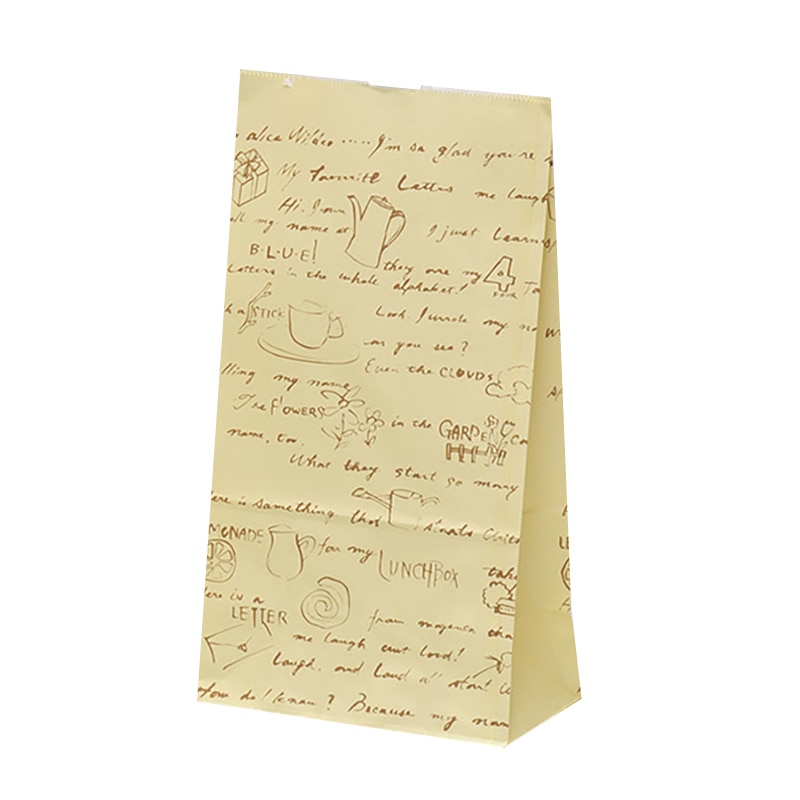 alice Wilder .... I'm so glad you're
My favourite Letters me laugh
Hi. I
all my name at I just learn
B·L·U·E!
they are my 4 To
FOUR
Letters in the whole alphabet!
STICK Look. I wrote my na
can you see?
Even the CLOUDS
lling my name
The FLOWERS in the GARDEN
name, too.
What they start so many
ere is something that starts
MONADE for my LUNCHBOX
take
ere is a
LETTER from magenta tha
me laugh out loud!
Laugh. and Loud all start
How do I know? Because my nam